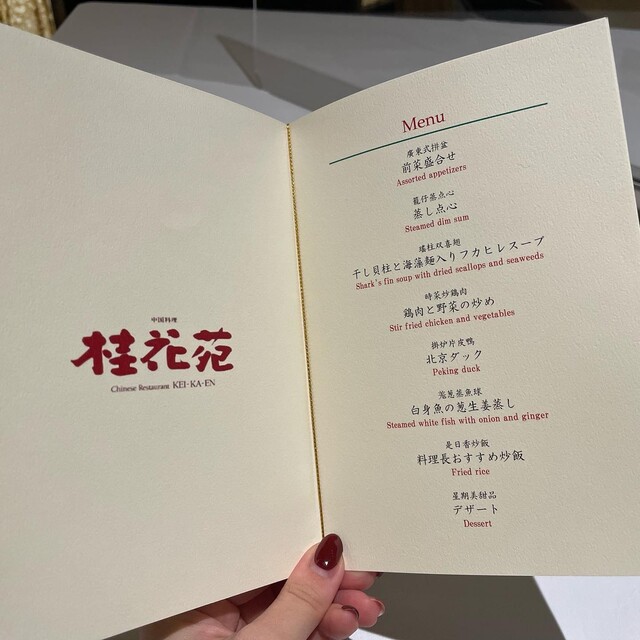 中国料理
桂花苑
Chinese Restaurant KEI-KA-EN
Menu
廣東式拼盆
前菜盛合せ
Assorted appetizers
籠仔蒸点心
蒸し点心
Steamed dim sum
瑤柱双喜翅
干し貝柱と海藻麺入りフカヒレスープ
Shark's fin soup with dried scallops and seaweeds
時菜炒鶏肉
鶏肉と野菜の炒め
Stir fried chicken and vegetables
掛炉片皮鴨
北京ダック
Peking duck
葱蒸魚球
白身魚の葱生姜蒸し
Steamed white fish with onion and ginger
是日香炒飯
料理長おすすめ炒飯
Fried rice
星期美甜品
デザート
Dessert